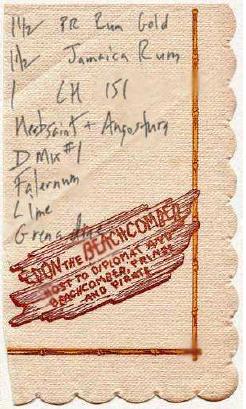 1 1/2 PR Rum Gold
1 1/2 Jamaica Rum
1 LH 151
Herbsaint + Angostura
D Mix #1
Falernum
Lime
Grenadine
DON THE BEACHCOMBER
HOST TO DIPLOMAT AND
BEACHCOMBER, PRINCE
AND PIRATE